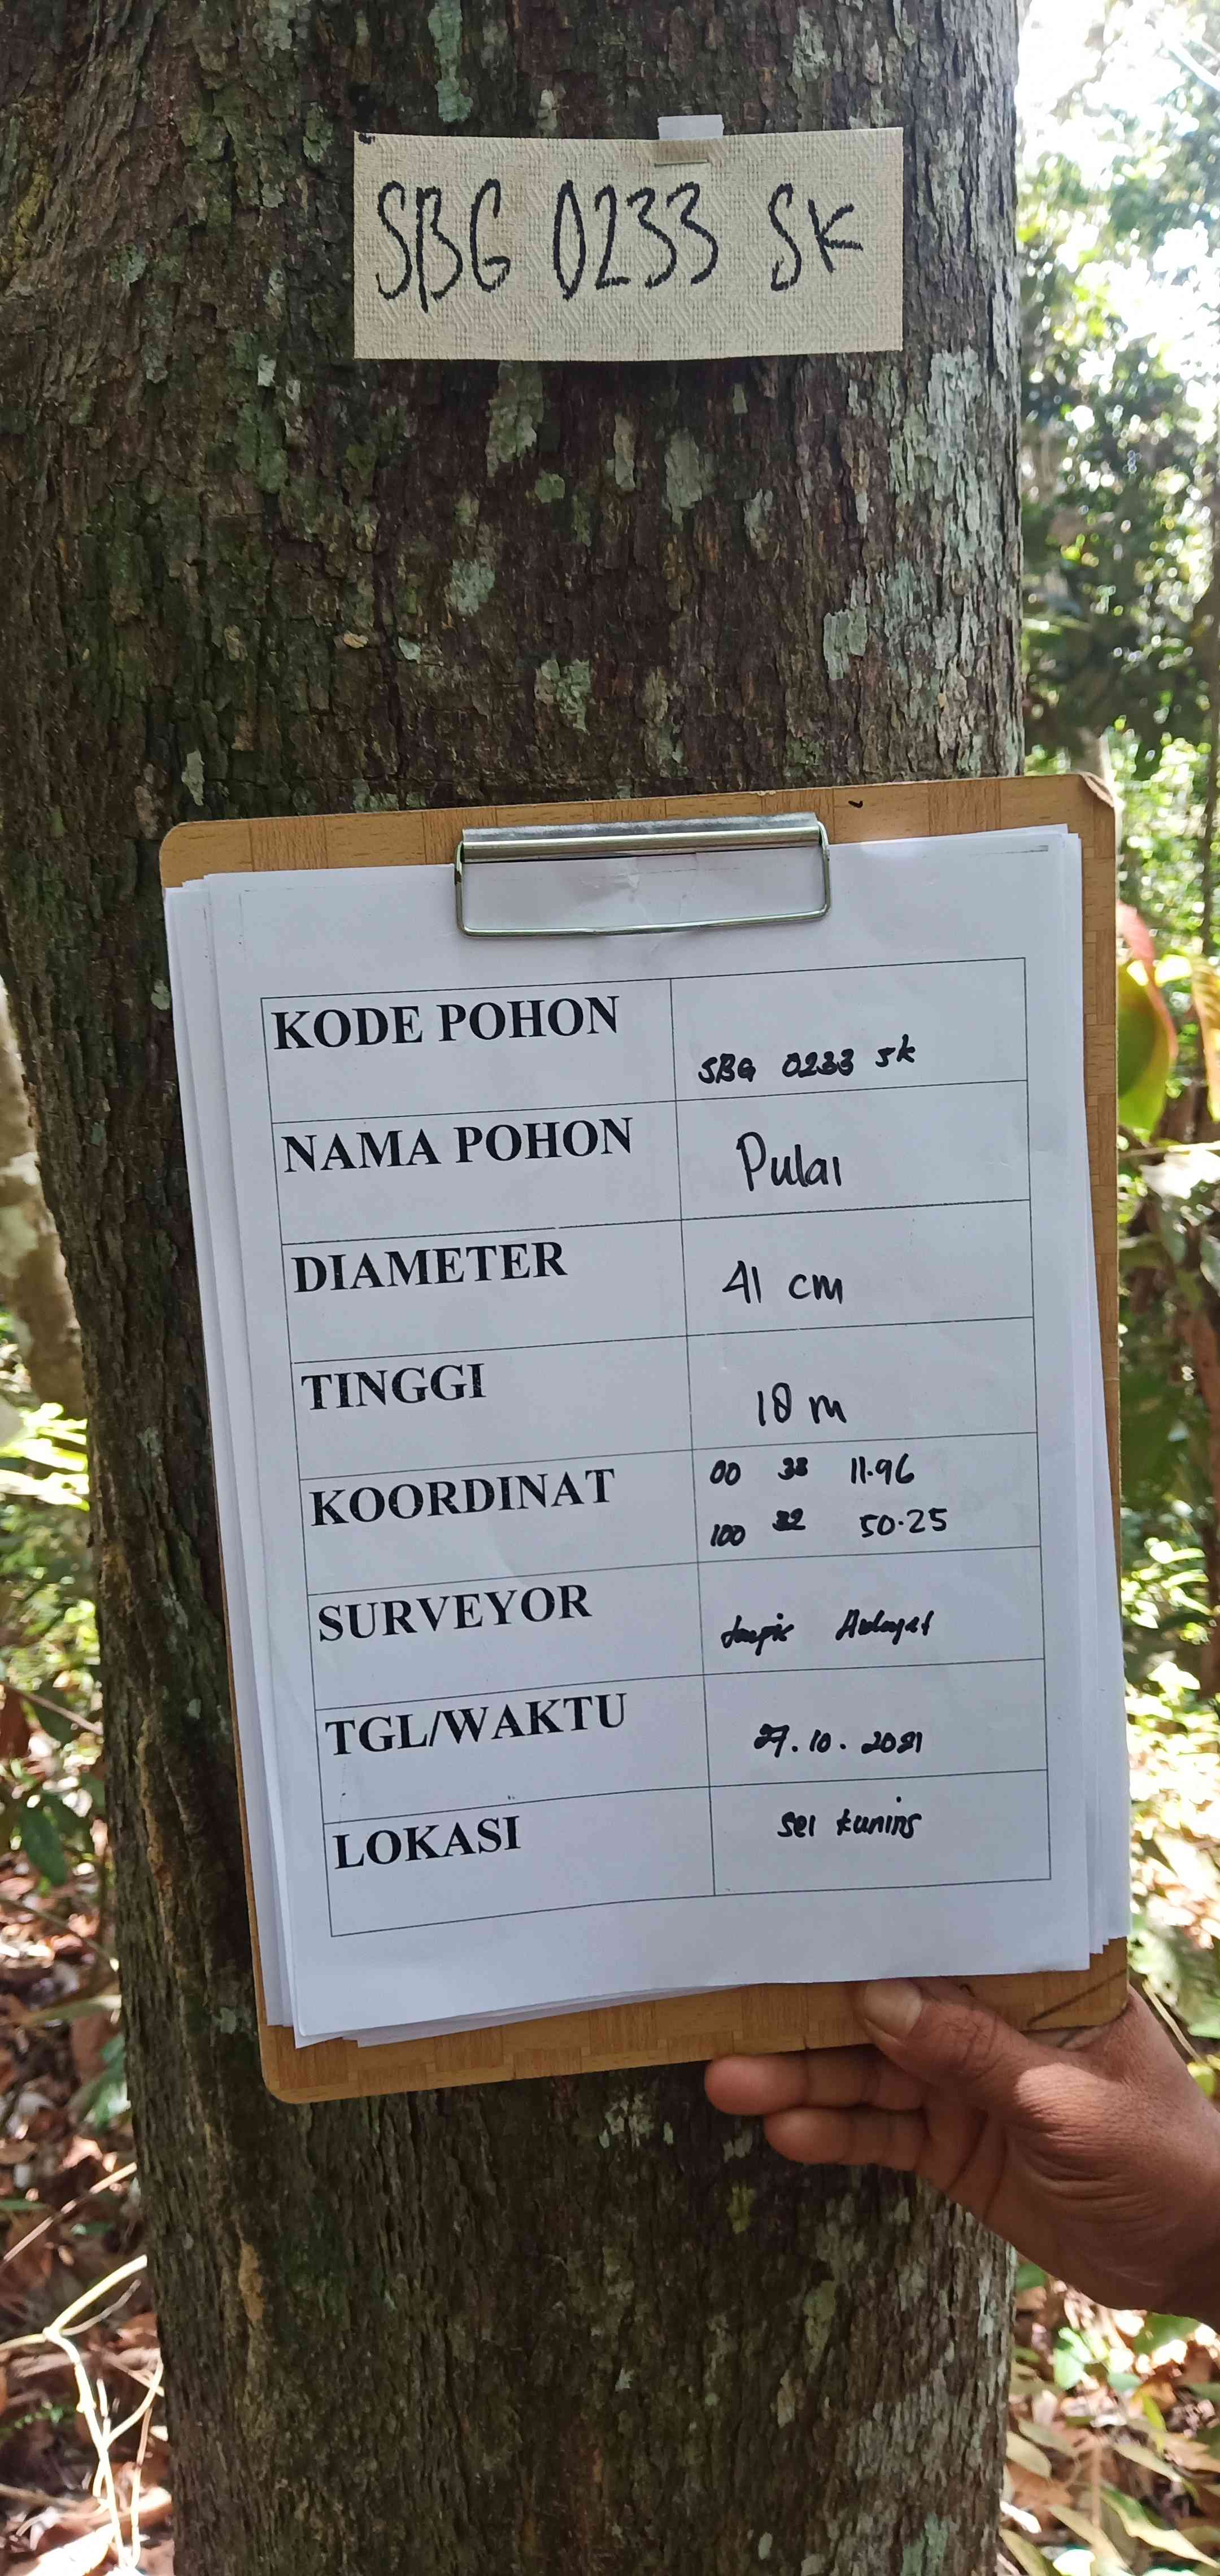 SBG 0233 SK
KODE POHON SBG 0233 SK
NAMA POHON Pulai
DIAMETER 41 cm
TINGGI 18 m
KOORDINAT 00 38 11.96
100 32 50.25
SURVEYOR
TGL/WAKTU 27.10.2021
LOKASI sei kuning